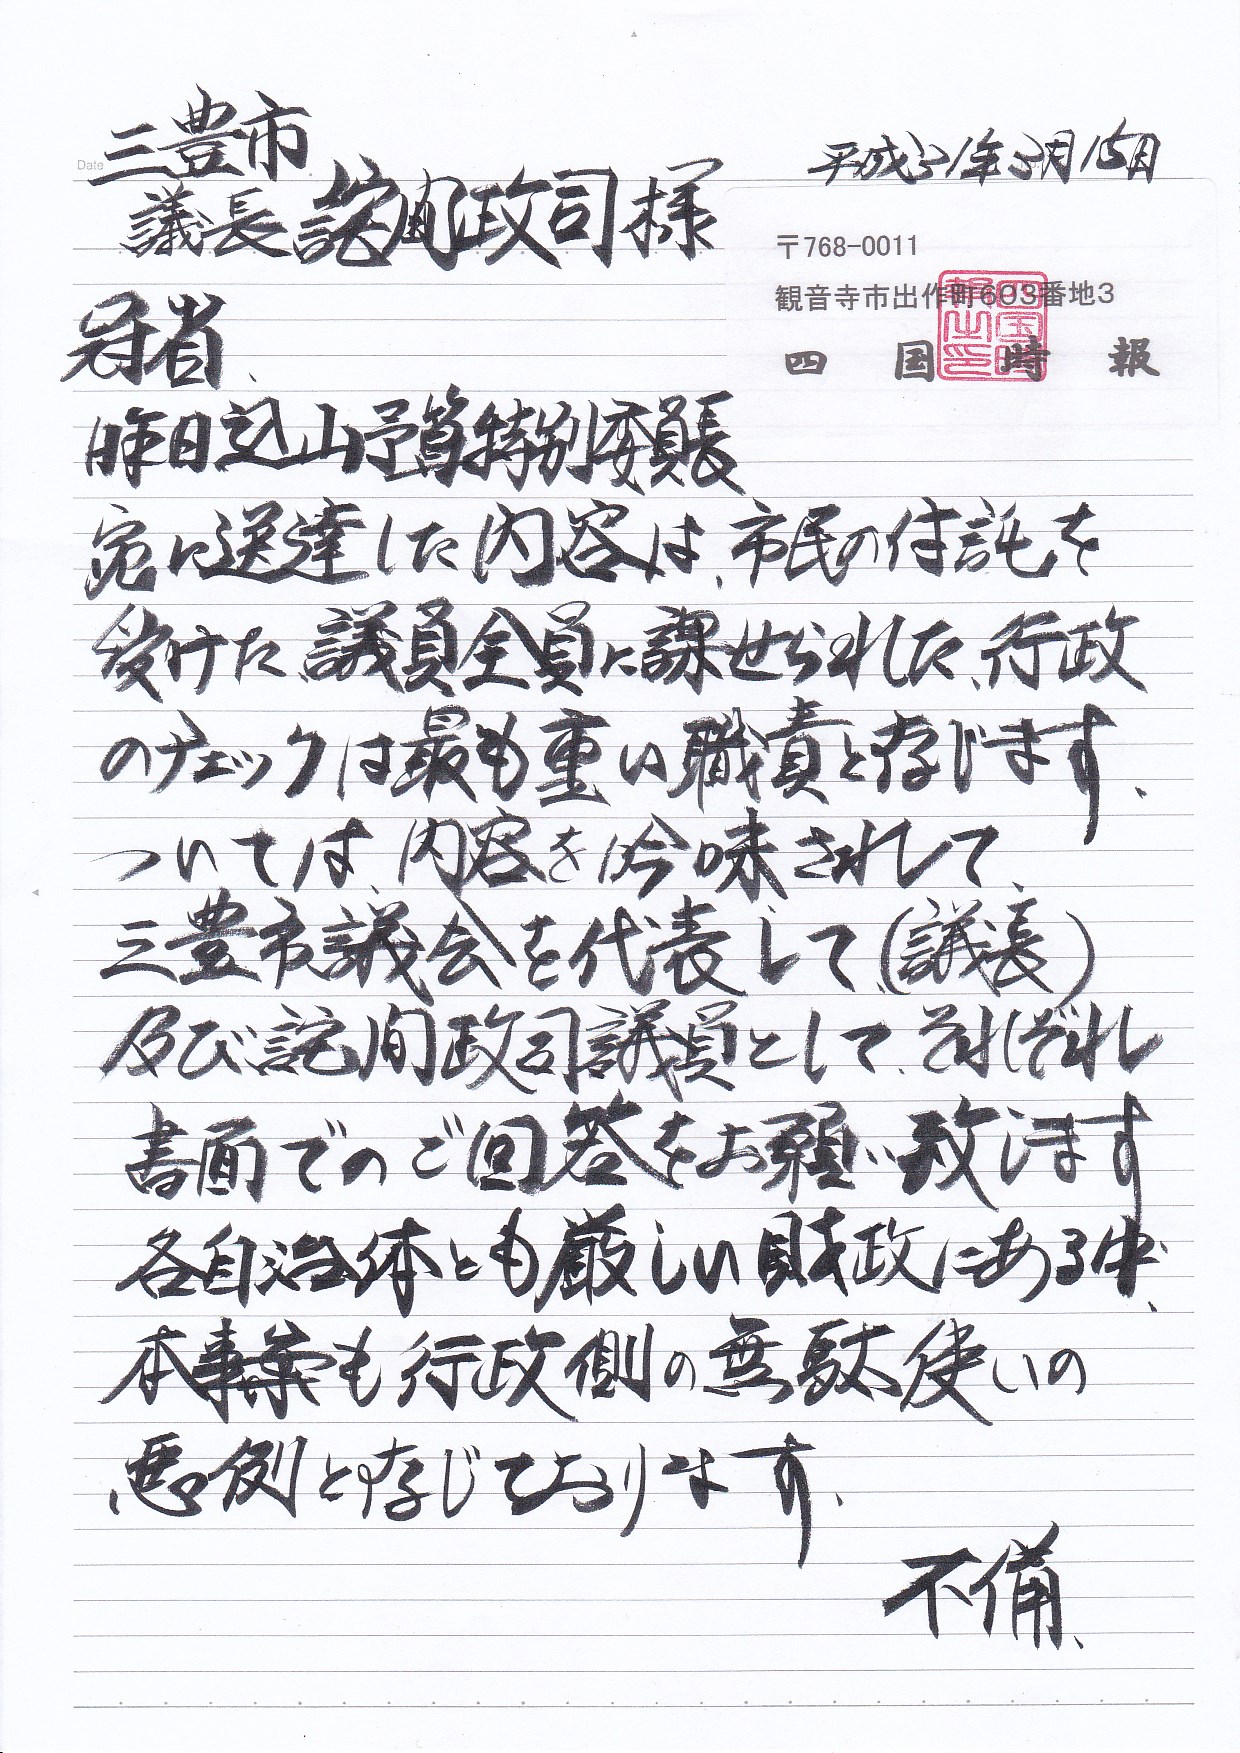 Date
平成31年3月15日
三豊市
議長 詫間政司様
〒768-0011
観音寺市出作町603番地3
四国時報
冠省、
昨日込山予算特別委員長
宛に送達した内容は、市民の付託を
受けた、議員全員に課せられた、行政
のチェックは最も重い職責と存じます、
ついては、内容を吟味されして、
三豊市議会を代表して、(議長)
及び詫間政司議員として、それぞれ
書面でのご回答をお願い致します
各自治体とも厳しい財政にある中、
本事業も行政側の無駄使いの
悪例と存じております、
不備、